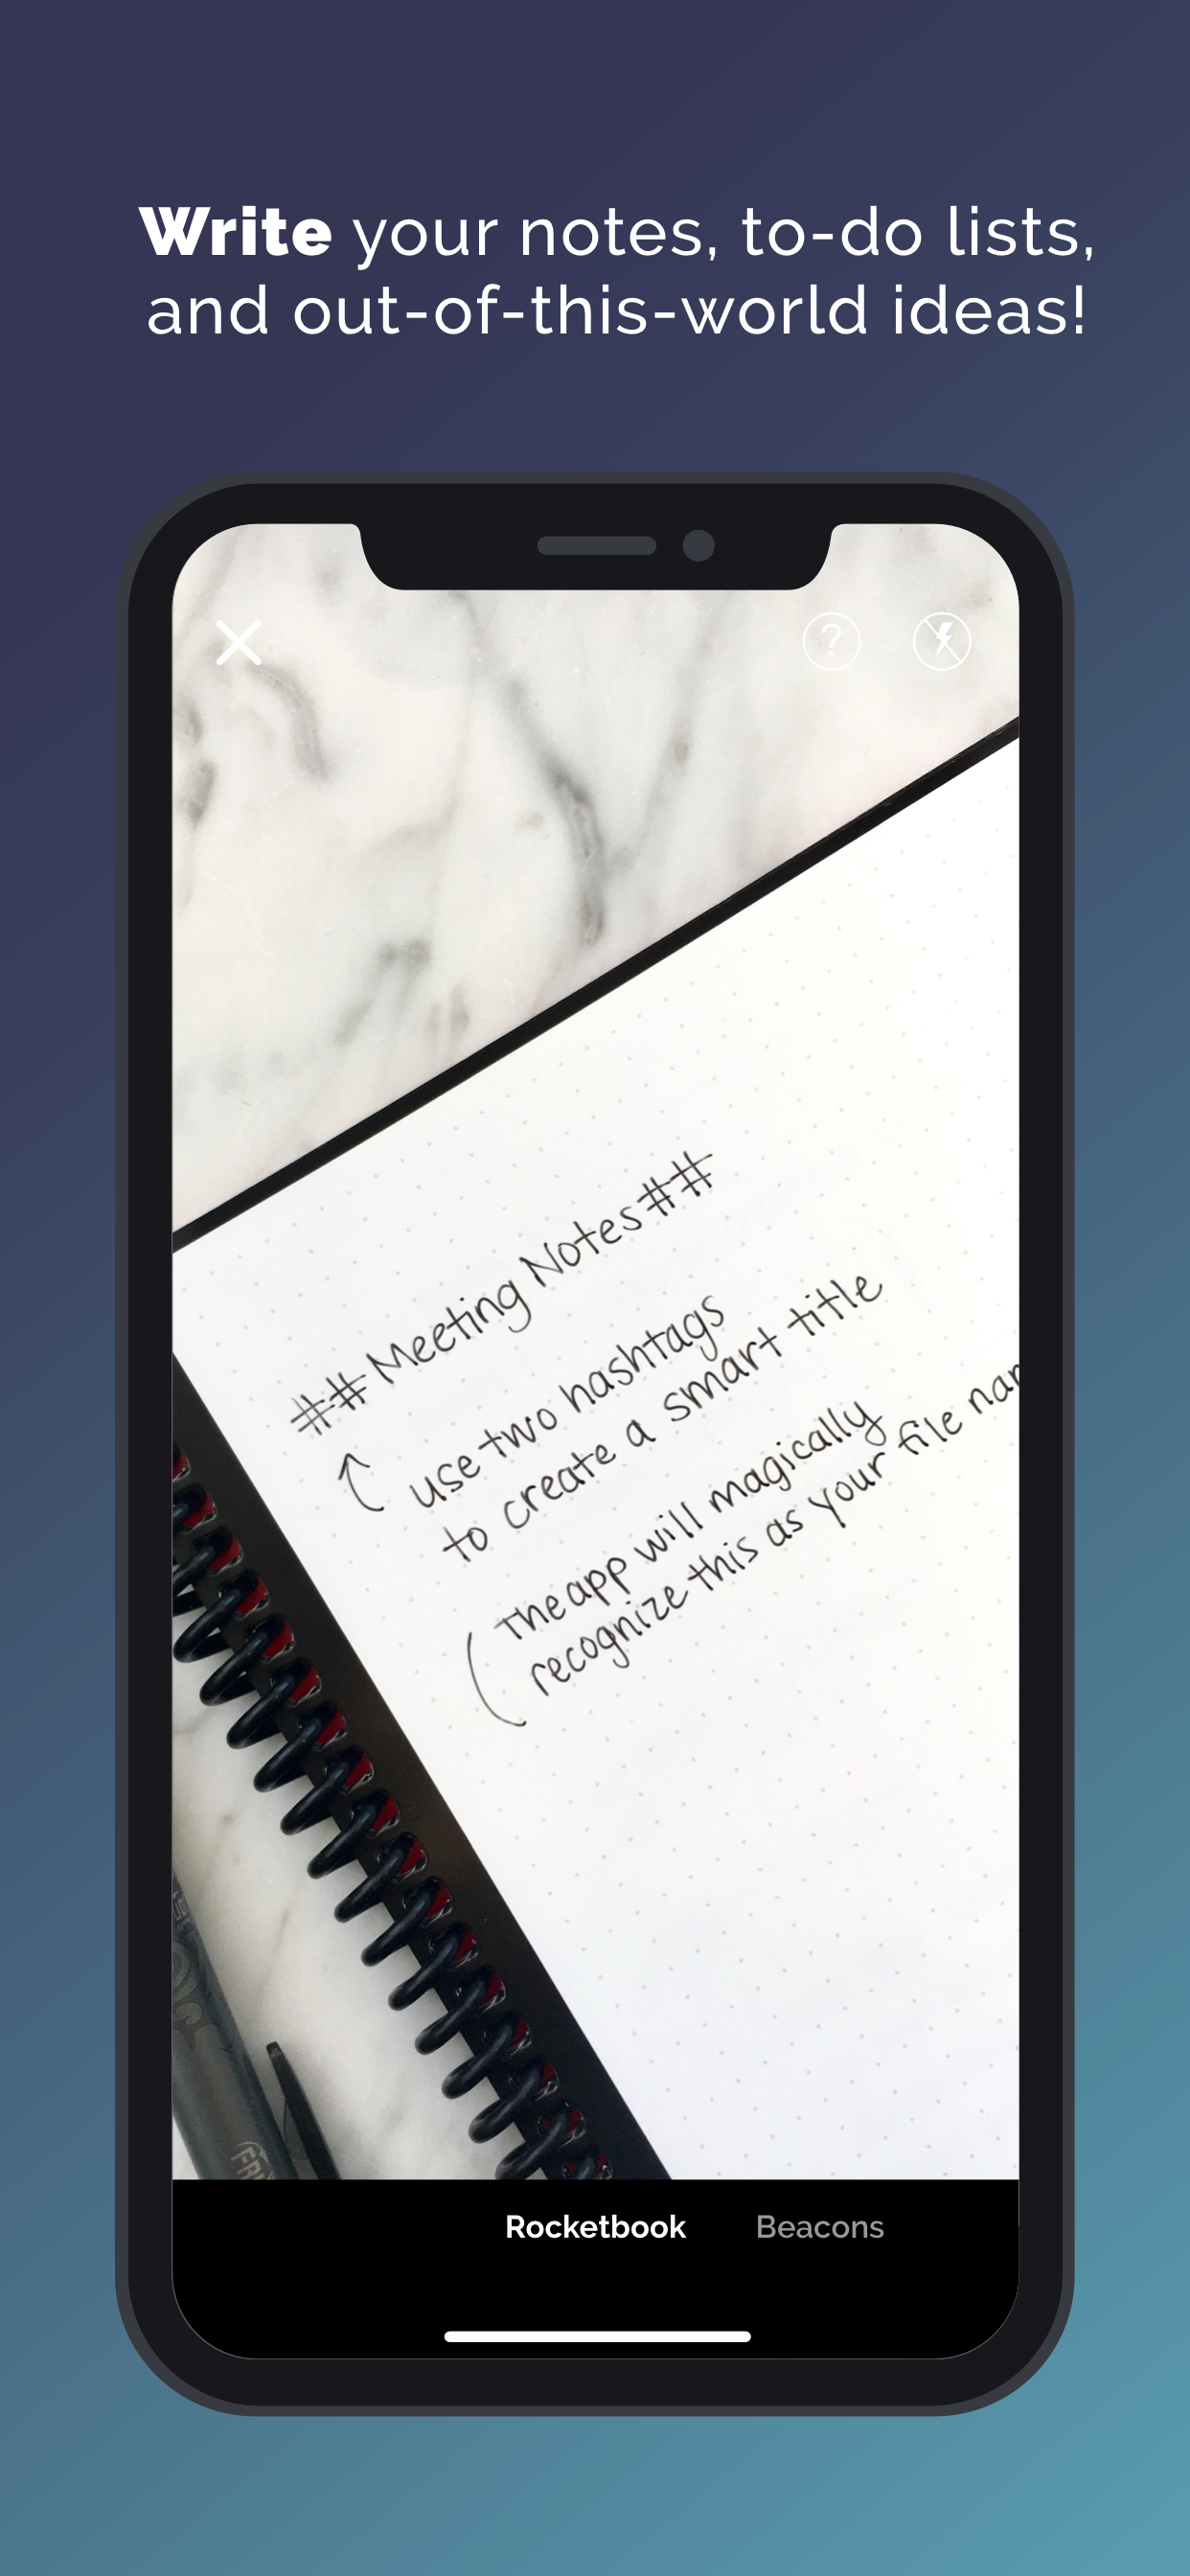 Write your notes, to-do lists,
and out-of-this-world ideas!
?
## Meeting Notes##
use two hashtags
to create a smart title
The app will magically
recognize this as your file nam
Rocketbook Beacons